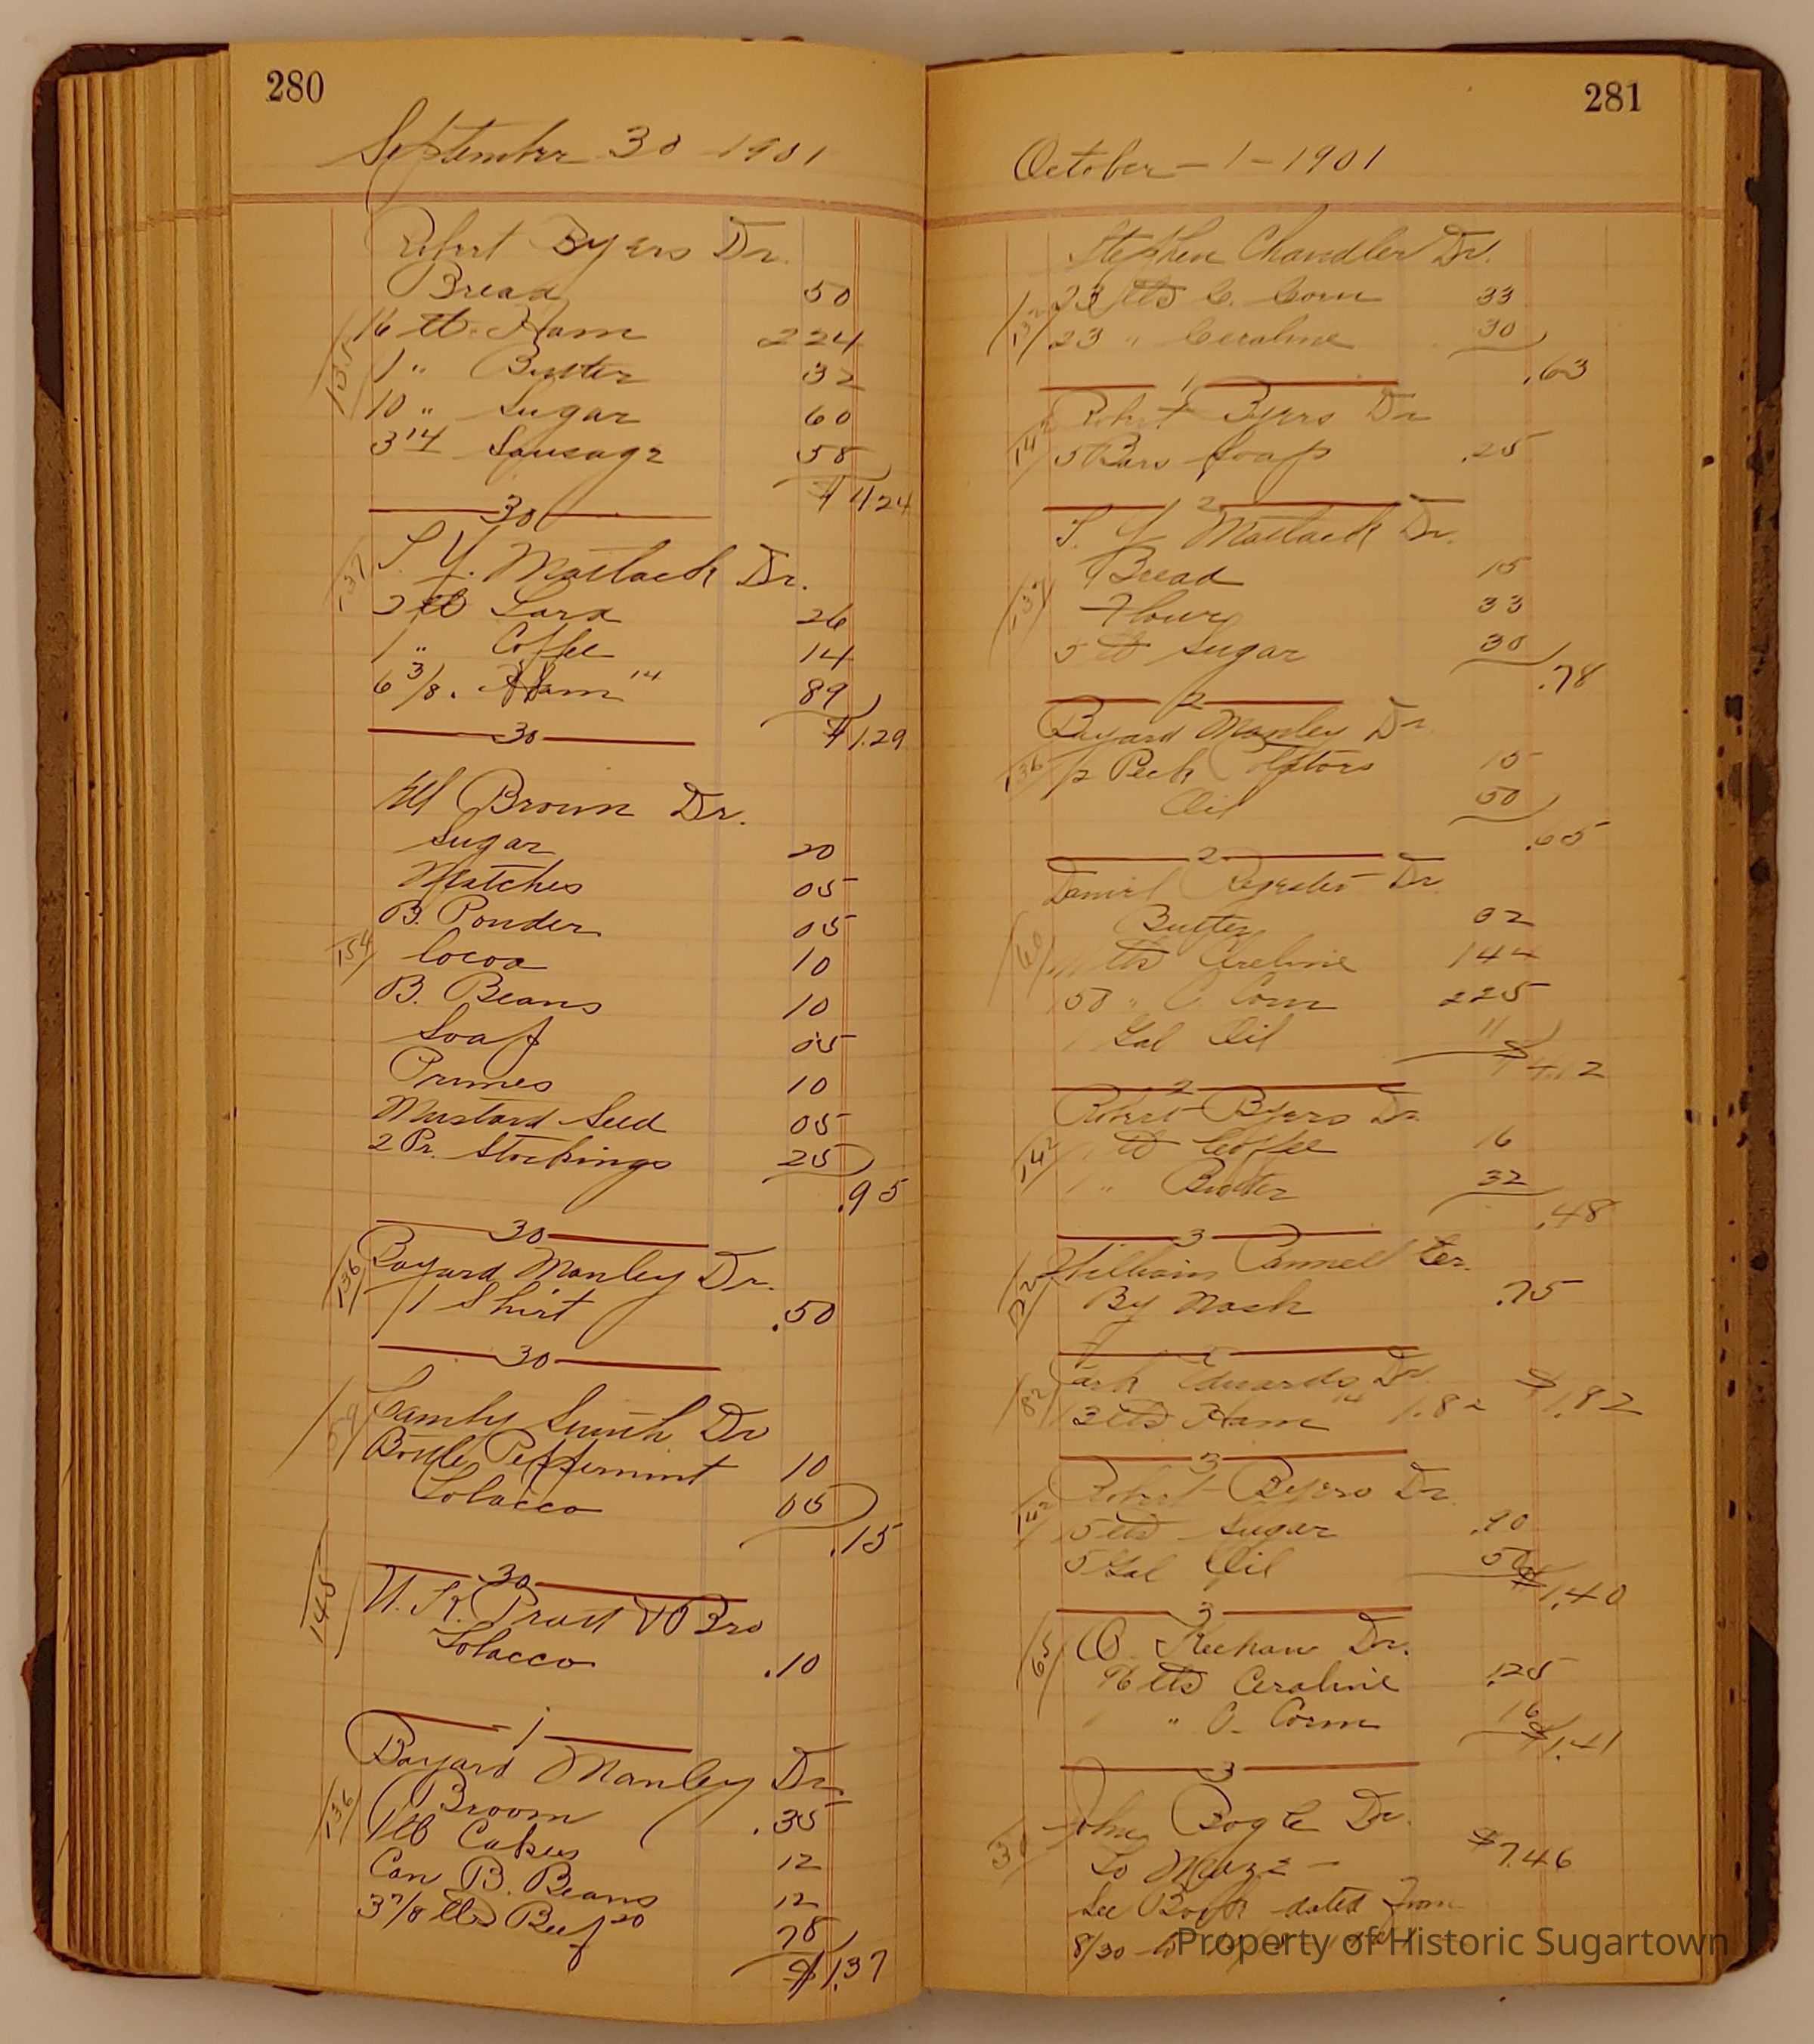 280
September 30 - 1901
Robert Byers Dr.
Bread 50
16 lb. Ham 2 24
135
1 " Butter 32
10 " Sugar 60
3 14 Sausage 58
$4.24
30
137
S. Y. Matlack Dr.
2 lb Lard 26
1 " Coffee 14
6 3/8 . Ham 14 89
$1.29
30
Brown Dr.
Sugar 20
Matches 05
B. Powder 05
154
Cocoa 10
B. Beans 10
Soap 05
Prunes 10
Mustard Seed 05
2 Pr. Stockings 25
.95
30
136
Bayard Manley Dr.
1 Shirt .50
30
59
Smith Dr
Bottle Peppermint 10
Tobacco 05
.15
30
145
Pratt & Bro
Tobacco .10
1
Bayard Manley Dr
136
Broom .35
1 lb Cakes 12
Can B. Beans 12
3 7/8 lbs Beef 20 78
$1.37
281
October - 1 - 1901
Stephen Chandler Dr.
23 lbs C. Corn 33
132
23 " Ceraline 30
.63
1
Robert Byers Dr
142
5 Bars Soap .25
2
S. Y. Matlack Dr.
Bread 15
137
Flour 33
5 lb Sugar 30
.78
2
Bayard Manley Dr
136
1/2 Peck Potatoes 15
Oil 50
.65
2
Daniel Register Dr
Butter 02
60
lbs Ceraline 1 44
150 " C. Corn 2 25
1 Gal Oil 11
$4.12
2
Robert Byers Dr.
142
1 lb Coffee 16
1 " Butter 32
.48
3
William Cannell Cr.
72
By Mdse .75
Edwards Dr.
82
13 lbs Ham 14 1.82 $1.82
3
Robert Byers Dr.
142
15 lbs Sugar .90
5 Gal Oil 50
$1.40
3
65
B. Keehan Dr.
96 lbs Ceraline 1.25
" C. Corn 16
$1.41
3
John Bogle Dr.
30
To Mdze - $7.46
See Book dated from
8/30 to
Property of Historic Sugartown